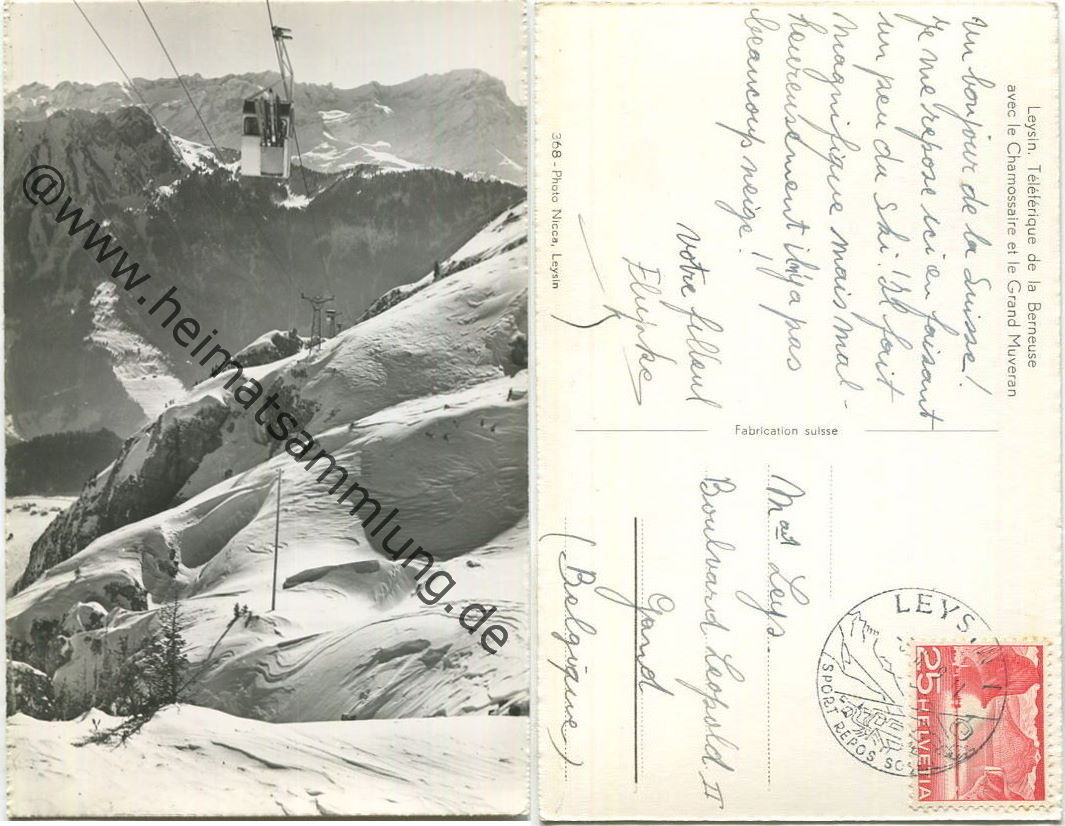 @www.heimatsammlung.de
Leysin. Téléférique de la Berneuse
avec le Chamossaire et le Grand Muveran
Un bonjour de la Suisse!
Je me repose ici en faisant
un peu du ski. Il fait
magnifique mais mal-
heureusement il n'y a pas
beaucoup neige!
votre filleul
368 - Photo Nicca, Leysin
Fabrication suisse
Leys
Boulevard Leopold II
Gand
(Belgique)
LEYSIN
SPORT REPOS
25 HELVETIA